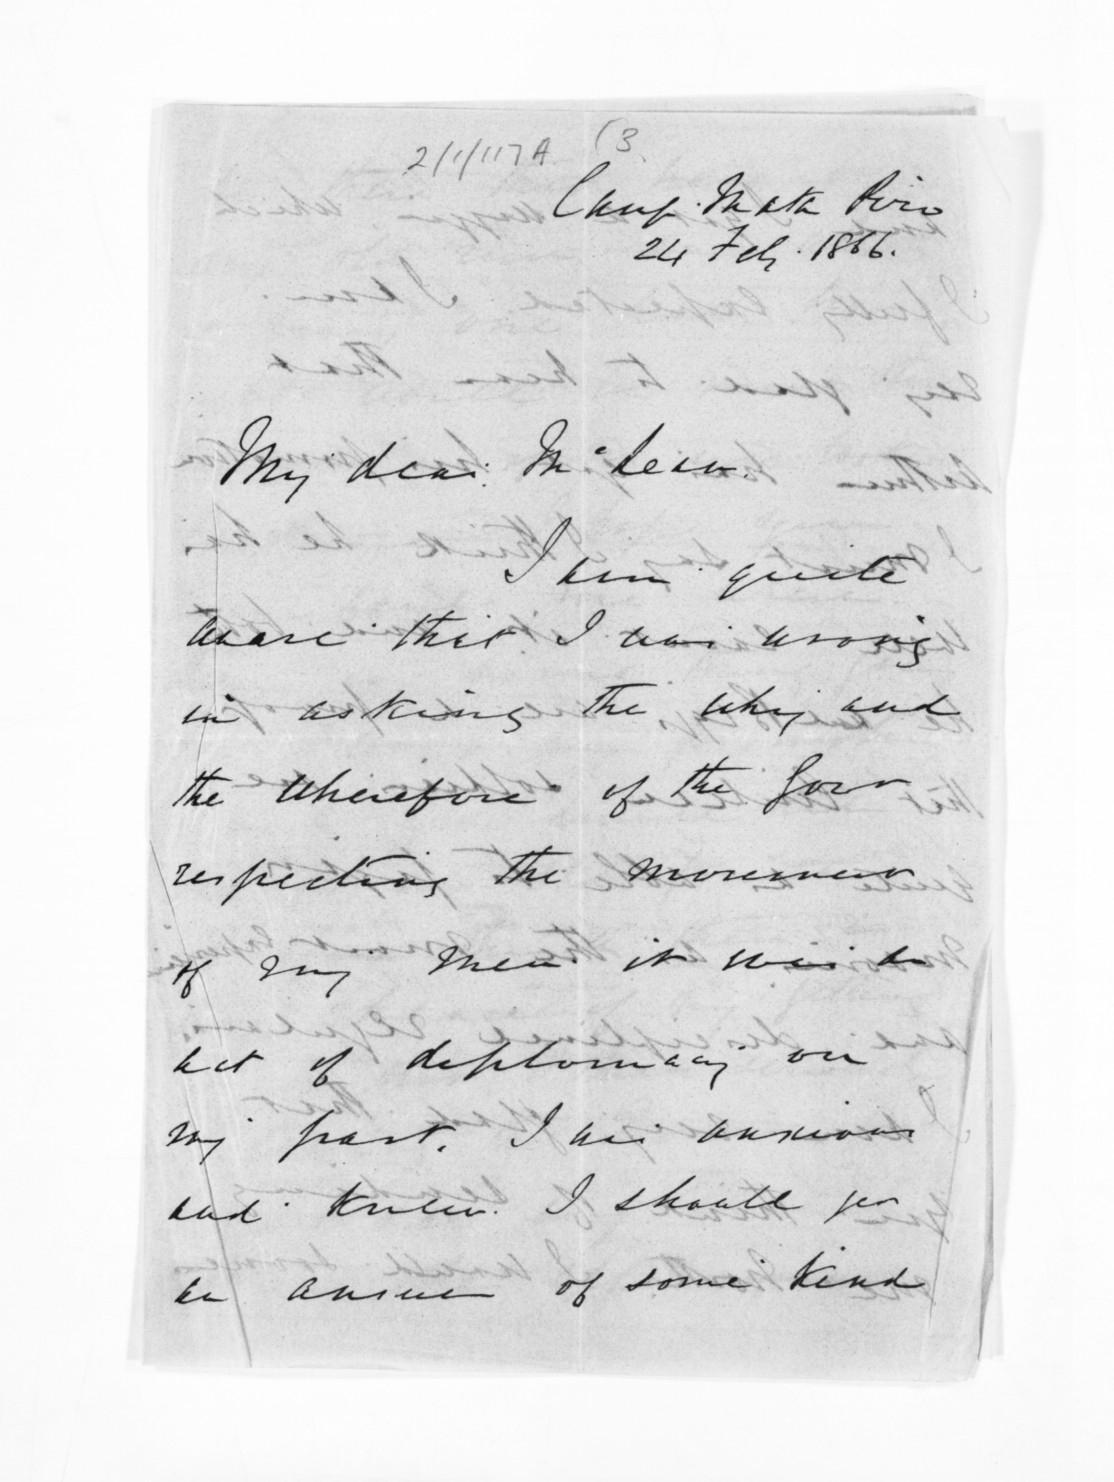 2/1/117A (3
Camp. Mata Piro
24 Feb. 1866.
My dear McLean.
I am quite
aware that I was wrong
in asking the why and
the wherefore of the Govr
respecting the movement
of my men. it was an
act of diplomacy on
my part. I was anxious
and knew. I should get
an answer of some kind